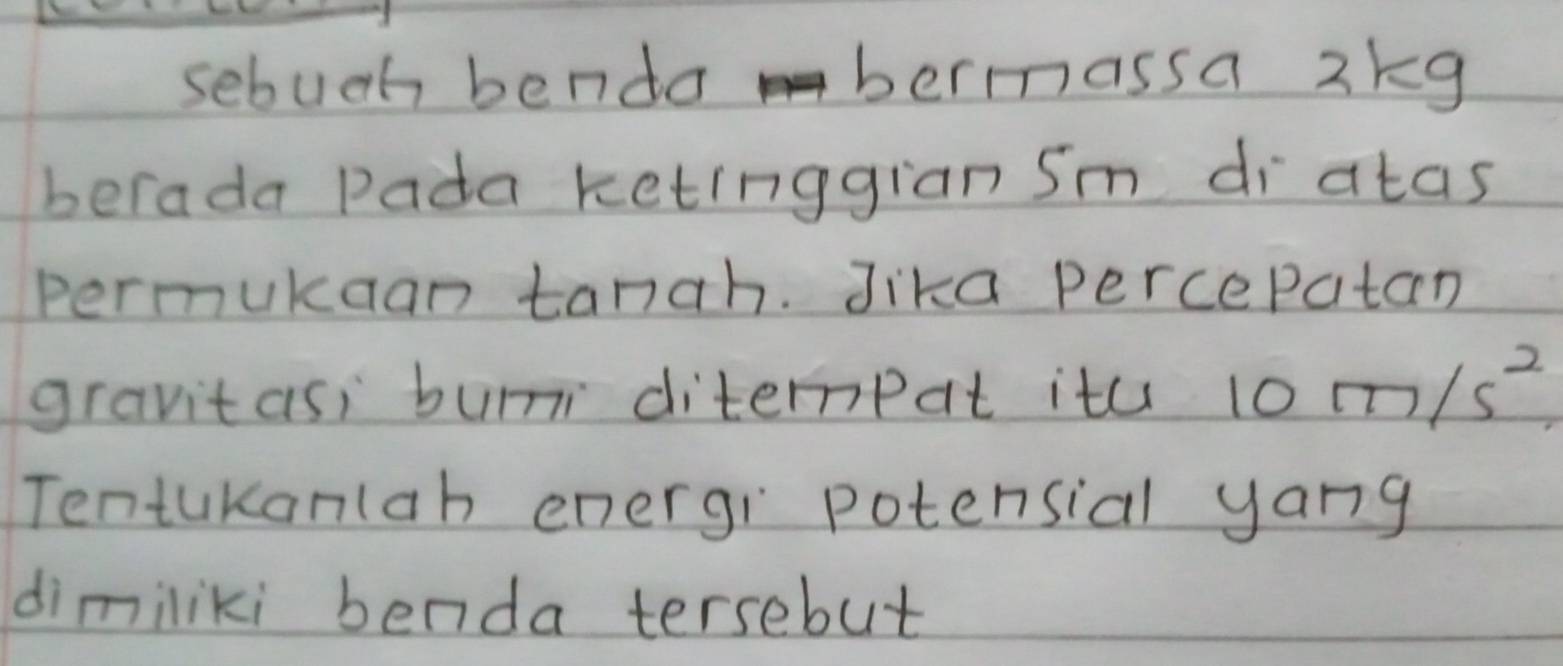 sebuah benda bermassa 2kg
berada pada ketinggian 5m di atas
permukaan tanah. Jika percepatan
gravitasi bumi ditempat itu 10 m/s².
Tentukanlah energi potensial yang
dimiliki benda tersebut